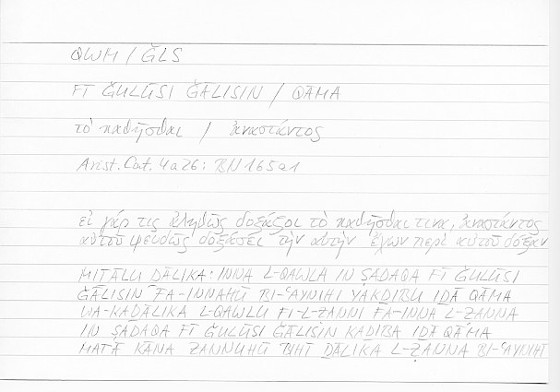 QWM / ǦLS
FĪ ǦULŪSI ǦĀLISIN / QĀMA
τὸ καθῆσθαι / ἀναστάντος
Arist. Cat. 4a26: BN 165a1
εἰ γάρ τις ἀληθῶς δοξάζοι τὸ καθῆσθαί τινα, ἀναστάντος
αὐτοῦ ψευδῶς δοξάσει τὴν αὐτὴν ἔχων περὶ αὐτοῦ δόξαν
MIṮĀLU ḎĀLIKA: INNA L-QAWLA IN ṢADAQA FĪ ǦULŪSI
ǦĀLISIN FA-INNAHŪ BI-ʿAYNIHI YAKḎIBU IḎĀ QĀMA
WA-KAḎĀLIKA L-QAWLU FI-L-ẒANNI FA-INNA L-ẒANNA
IN ṢADAQA FĪ ǦULŪSI ǦĀLISIN KAḎIBA IḎĀ QĀMA
MATĀ KĀNA ẒANNUHŪ BIHĪ ḎĀLIKA L-ẒANNA BI-ʿAYNIHĪ